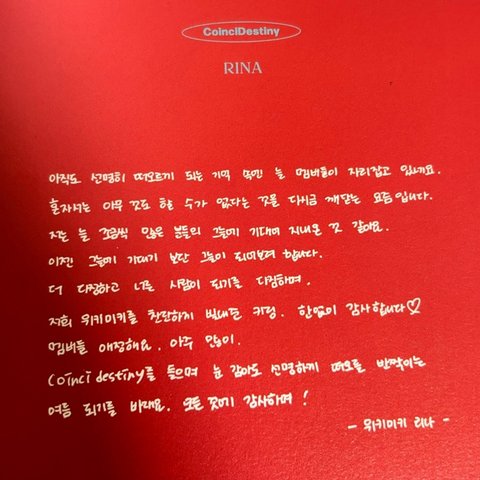 CoinciDestiny
RINA
아직도 선명히 떠오르게 되는 기억 속엔 늘 멤버들이 자리잡고 있네요.
혼자서는 아무 것도 할 수가 없다는 것을 다시금 깨닫는 요즘입니다.
저는 늘 조금씩 많은 분들의 그늘에 기대며 지내온 것 같아요.
이젠 그늘에 기대기 보단 그늘이 되어보려 합니다.
더 다정하고 너른 사람이 되기를 다짐하며,
저희 위키미키를 찬란하게 빛내준 키링. 한없이 감사합니다♡
멤버들 애정해요. 아주 많이.
Coinci destiny를 들으며 눈 감아도 선명하게 떠오를 반짝이는
여름 되기를 바래요. 모든 것에 감사하며!
- 위키미키 리나 -